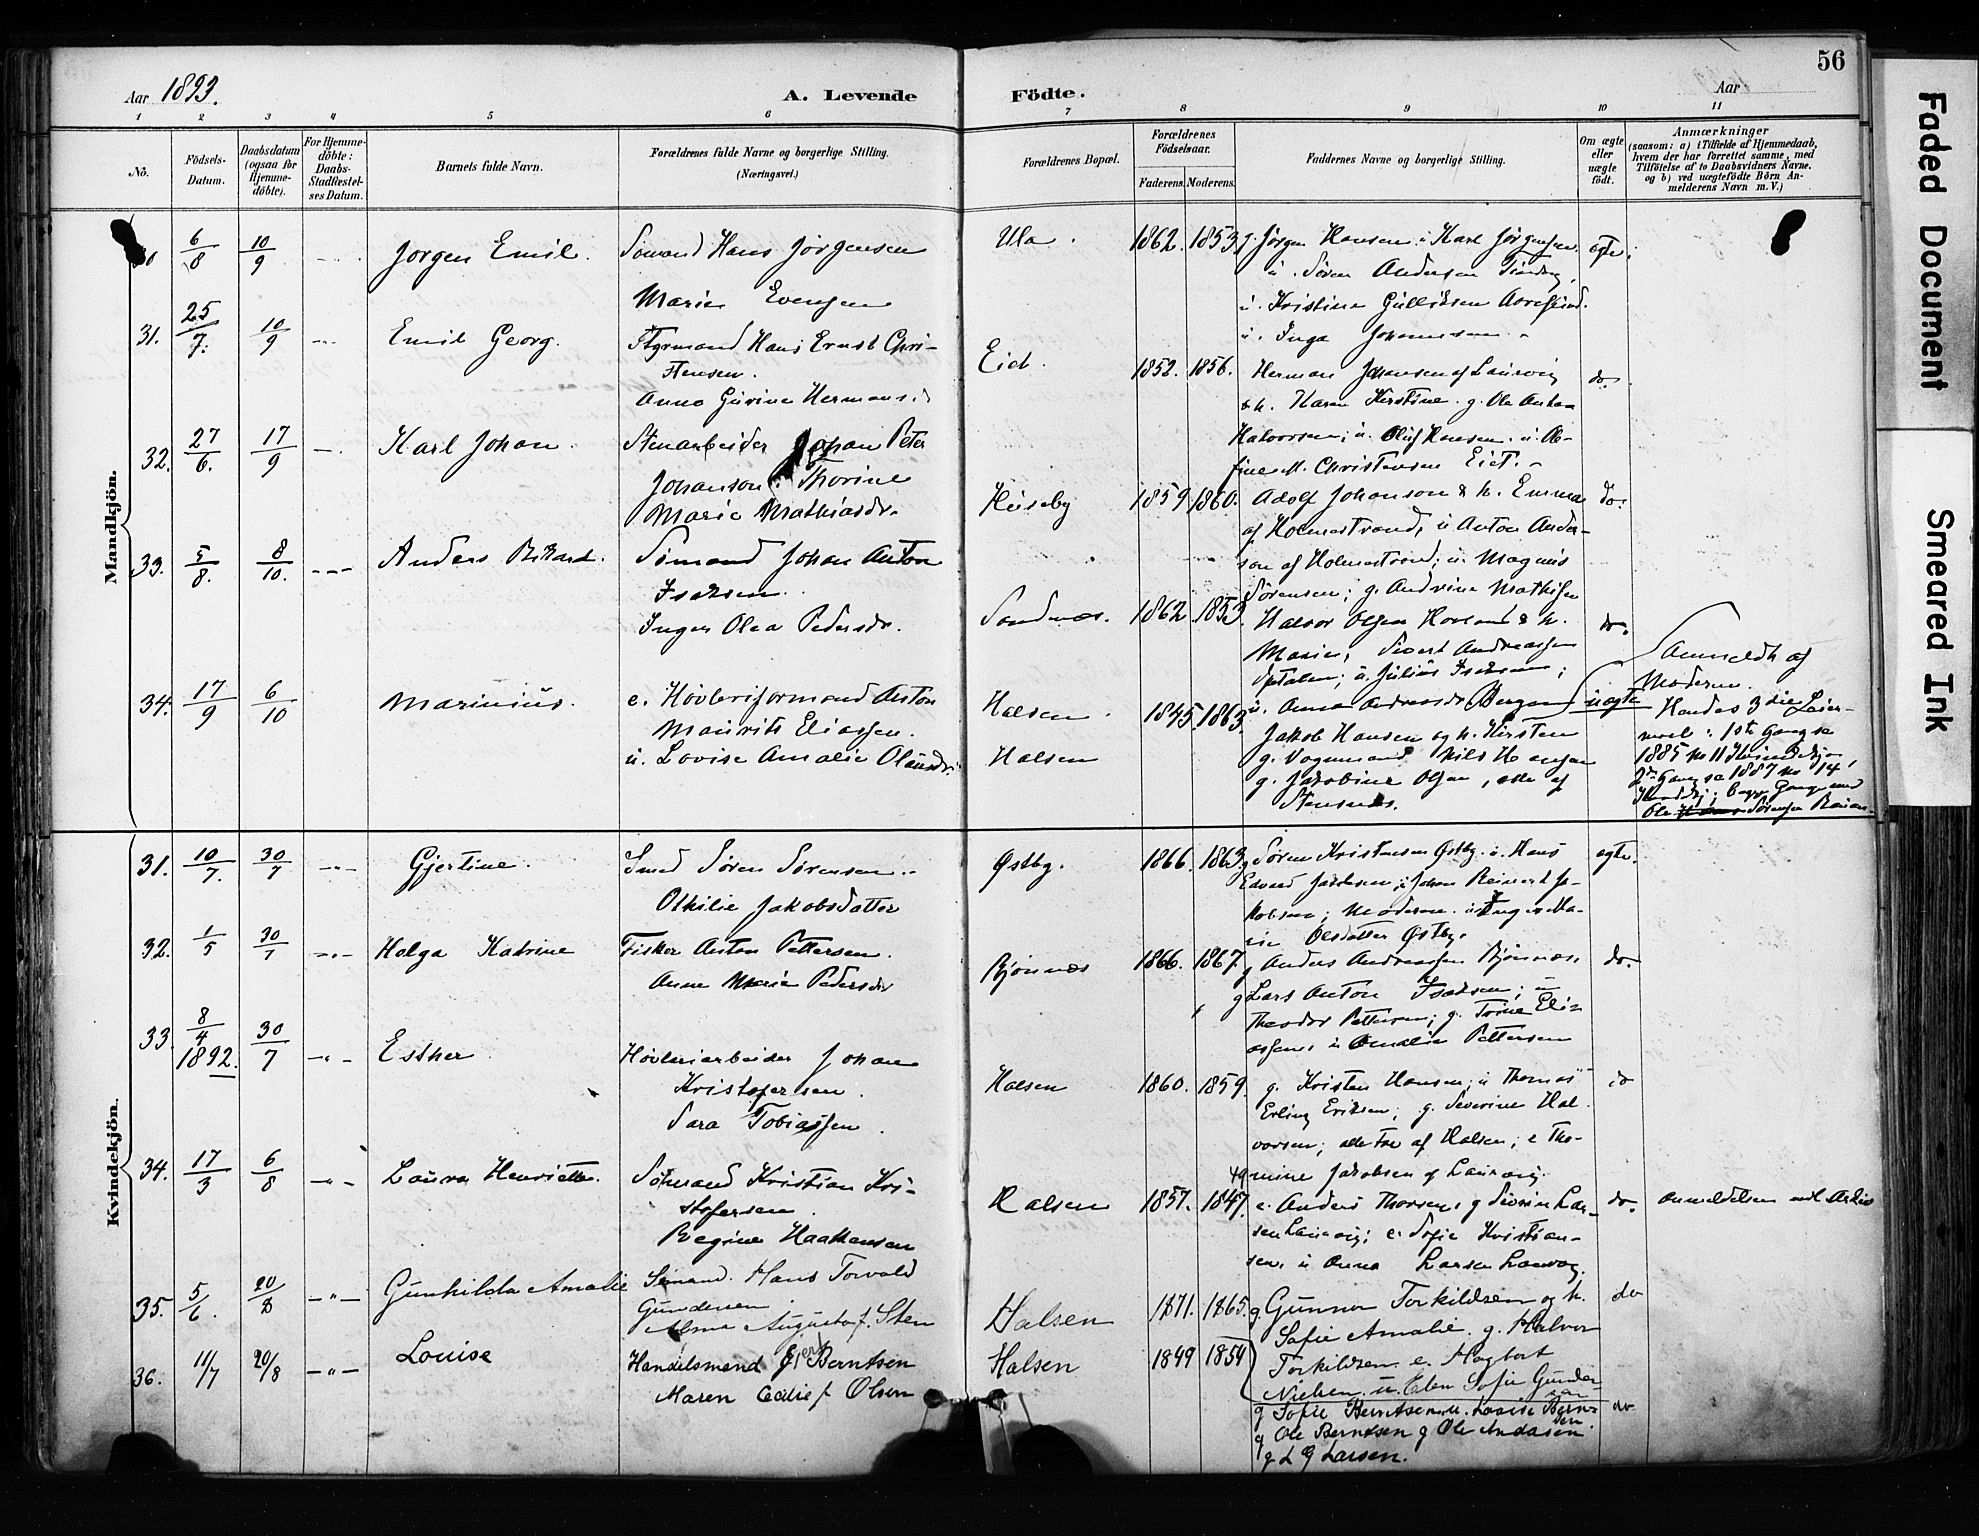 56
Aar 1893.
A. Levende Födte.
Aar
1 2 3 4 5 6 7 8 9 10 11
No.
Födsels-
Datum.
Daabsdatum
(ogsaa for
Hjemme-
döbte).
For Hjemme-
döbte:
Daabs-
Stadfæstel-
ses Datum.
Barnets fulde Navn.
Forældrenes fulde Navne og borgerlige Stilling.
(Næringsvei.)
Forældrenes Bopæl.
Forældrenes
Födselsaar.
Faderens. Moderens.
Faddernes Navne og borgerlige Stilling.
Om ægte
eller
uægte
födt.
Anmærkninger
(saasom: a) i Tilfælde af Hjemmedaab,
hvem der har forrettet samme, med
Tilföielse af to Daabsvidners Navne.
og b) ved uægtefödte Börn An-
melderens Navn m. V.)
Mandkjön.
6/8 10/9 Jorgen Emil. Hans Jørgensen
Marie Evensen
Ula. 1862. 1853. g. Jørgen Hansen. u. Karl Jørgensen. ægte.
u. Søren Andersen
u. Kristine Gulliksen
u. Inga Johannesen
31. 25/7. 10/9 Emil Georg. Styrmand Hans Ernst Chri-
stensen.
Anna Gurine Hermans.d
Eid. 1852. 1856. Herman Johansen af Laurvig do.
& h. Karen Kirstine. g. Ole Anton
Halvorsen; u. Oluf Hansen. u.
Christensen Eid.
32. 27/6. 17/9 Karl Johan. Stenarbeider Johan Peter
Johanson. Thorine
Marie Mathiasdr.
Huseby 1859 1860. Adolf Johanson & h. Emma do.
af Holmestrand, u Anton Ander-
son af Holmestrand; u. Magnus
Sørensen; g. Andrine Mathisen
33. 5/8. 8/10. Anders Rikard. Sømand Johan Anton
Isaksen.
Inger Olea Pedersdr.
Sandnæs. 1862 1853. Halvor Olsen & h. do.
Marie; Sivert Andreassen
u. Julius Isaksen;
u. Anna Andreasdr Bergan
34. 17/9 6/10 Marinius. e. Høvleriformand Anton
Maurits Eliassen.
u. Lovise Amalie Olausdr.
Halsen. 1845. 1863. uægte
Halsen
Jakob Hansen og h. Kirsten
g. Vognmand Nils Hansen
g. Jakobine Olsen, alle af
Stensnæs.
Anmeldt af
Moderen.
Hendes 3die Leier-
maal: 1ste Gang se
1885 No 11 Kvindekjøn,
2den Gang se 1887 No 14
begge Gange med
Ole Sørensen
Kvindekjön.
31. 10/7. 30/7 Gjertine. Smed Søren Sørensen.
Othilie Jakobsdatter
Østby. 1866. 1863. g Søren Kristensen Østby. u. Hans ægte.
Edvard Jakobsen; u Johan Reinert Ja-
kobsen; Moderen. u Inger Ma-
rie Olsdatter Østby.
32. 1/5 30/7 Helga Katrine Fisker Anton Pettersen.
Anne Marie Pedersdr
Bjønnæs 1866. 1867. g Anders Andreassen Bjønnæs. do.
g Lars Anton Isaksen; u
Theodor Pettersen; g. Trine Eli-
assen, u Amalie Pettersen
33. 8/4 1892. 30/7 Esther Høvleriarbeider Johan
Kristofersen.
Sara Tobiassen.
Halsen 1860. 1859. g. Kristen Hansen; u Thomas do
Erling Eriksen; g. Severine Hal-
vorsen; alle tre af Halsen; e Tho-
mine Jakobsen af Laurvig.
34. 17/3 6/8 Laura Henriette. Sømand Kristian Kri-
stofersen.
Regine Haakensen
Halsen 1857. 1847. e. Anders Thorsen, g Severin Lar- do. Anmeldelsen vedl. Arkiv
sen Laurvig; e. Sofie Kristian-
sen, u Anna Larsen Laurvig.
35. 5/6. 20/8 Gunhilda Amalie Sømand. Hans Torvald
Gundersen
Alma Augusta f. Sten
Halsen 1871. 1865. g. Gunnar Torkildsen og h. do
Sofie Amalie. g. Halvor
Torkildsen. e. Hagbart
Nielsen. u. Elen Sofie Gunder-
sen
36. 11/7 20/8 Louise Handelsmand Berntsen
Maren f Olsen
Halsen 1849 1854 g Sofie Berntsen. u. Louise Bern- do
sen
g Ole Berntsen g Ole Andasen
g L G Larsen.
Faded Document
Smeared Ink